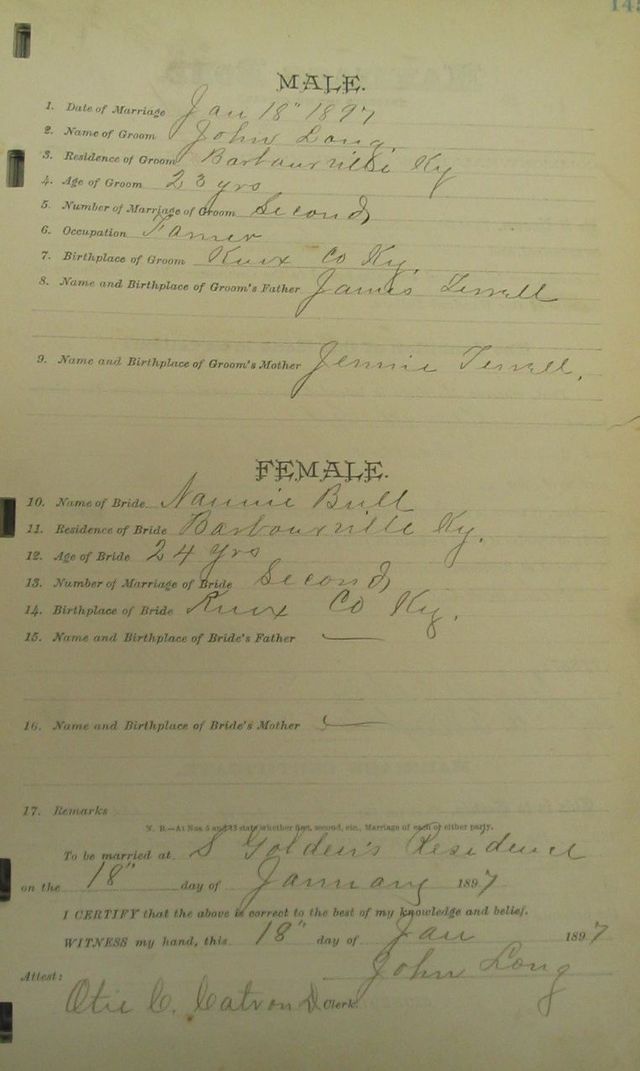 MALE.
1. Date of Marriage Jan 18" 1897
2. Name of Groom John Long.
3. Residence of Groom Barbourville Ky
4. Age of Groom 23 yrs
5. Number of Marriage of Groom Second
6. Occupation Farmer
7. Birthplace of Groom Knox Co Ky.
8. Name and Birthplace of Groom's Father James Terrell
9. Name and Birthplace of Groom's Mother Jennie Terrell.
FEMALE.
10. Name of Bride Nannie Bull
11. Residence of Bride Barbourville Ky.
12. Age of Bride 24 yrs
13. Number of Marriage of Bride Second
14. Birthplace of Bride Knox Co Ky.
15. Name and Birthplace of Bride's Father —
16. Name and Birthplace of Bride's Mother —
17. Remarks
N. B.—At Nos 5 and 13 state whether first, second, etc., Marriage of each or either party.
To be married at S Golden's Residence
on the 18" day of January 1897
I CERTIFY that the above is correct to the best of my knowledge and belief.
WITNESS my hand, this 18" day of Jan 1897
John Long
Attest:
Otis C. Catron D Clerk.